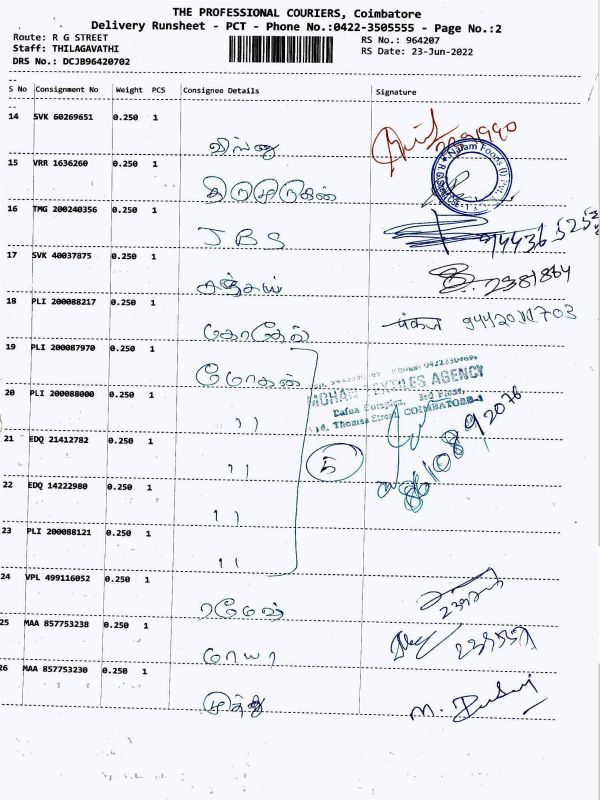 THE PROFESSIONAL COURIERS, Coimbatore
Delivery Runsheet - PCT - Phone No.:0422-3505555 - Page No.:2
Route: R G STREET
RS No.: 964207
Staff: THILAGAVATHI
RS Date: 23-Jun-2022
DRS No.: DCJB96420702
S No Consignment No Weight PCS Consignee Details Signature
14 SVK 60269651 0.250 1 விஷ்ணு
15 VRR 1636260 0.250 1 திருமுருகன்
Nalam Foods (I) Pvt.
16 TMG 200240356 0.250 1 JBS
17 SVK 40037875 0.250 1 சஞ்சய் 2381864
18 PLI 200088217 0.250 1 கோகேல்
19 PLI 200087970 0.250 1 மோகன்
MOHAN TEXTILES AGENCY
3rd Floor,
Thomas Street, COIMBATORE-1
20 PLI 200088000 0.250 1 ,,
21 EDQ 21412782 0.250 1 ,, 5
22 EDQ 14222980 0.250 1 ,,
23 PLI 200088121 0.250 1 ,,
24 VPL 499116052 0.250 1 ரமேஷ்
25 MAA 857753238 0.250 1 மாயா
26 MAA 857753230 0.250 1 முத்து